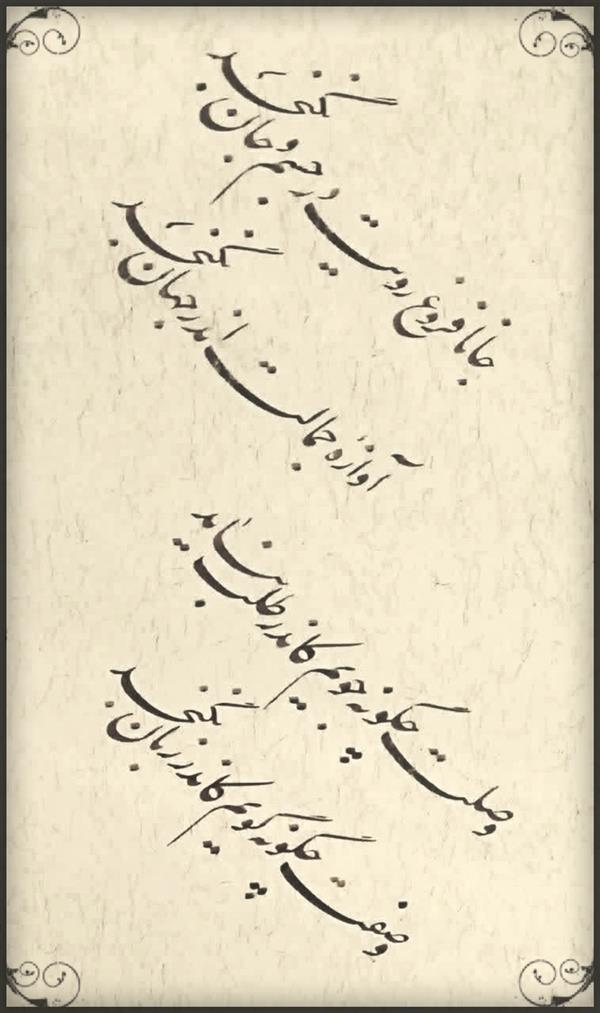 جانا فروغ رویت در جسم و جان نگنجد
آوازهٔ جمالت اندر جهان نگنجد
وصلت چگونه جویم کاندر طلب نیاید
وصفت چگونه گویم کاندر زبان نگنجد